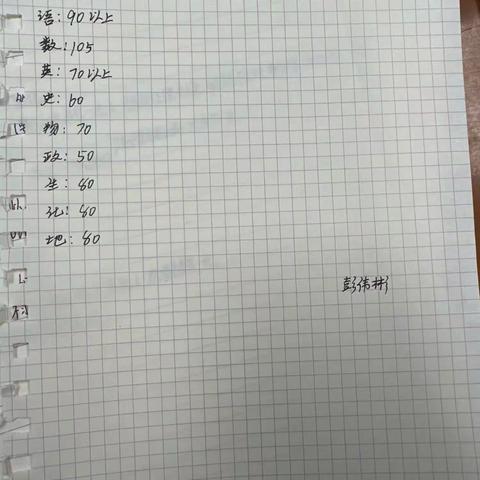 语：90以上
数：105
英：70以上
史：60
物：70
政：50
生：80
化：80
地：80
彭伟彬